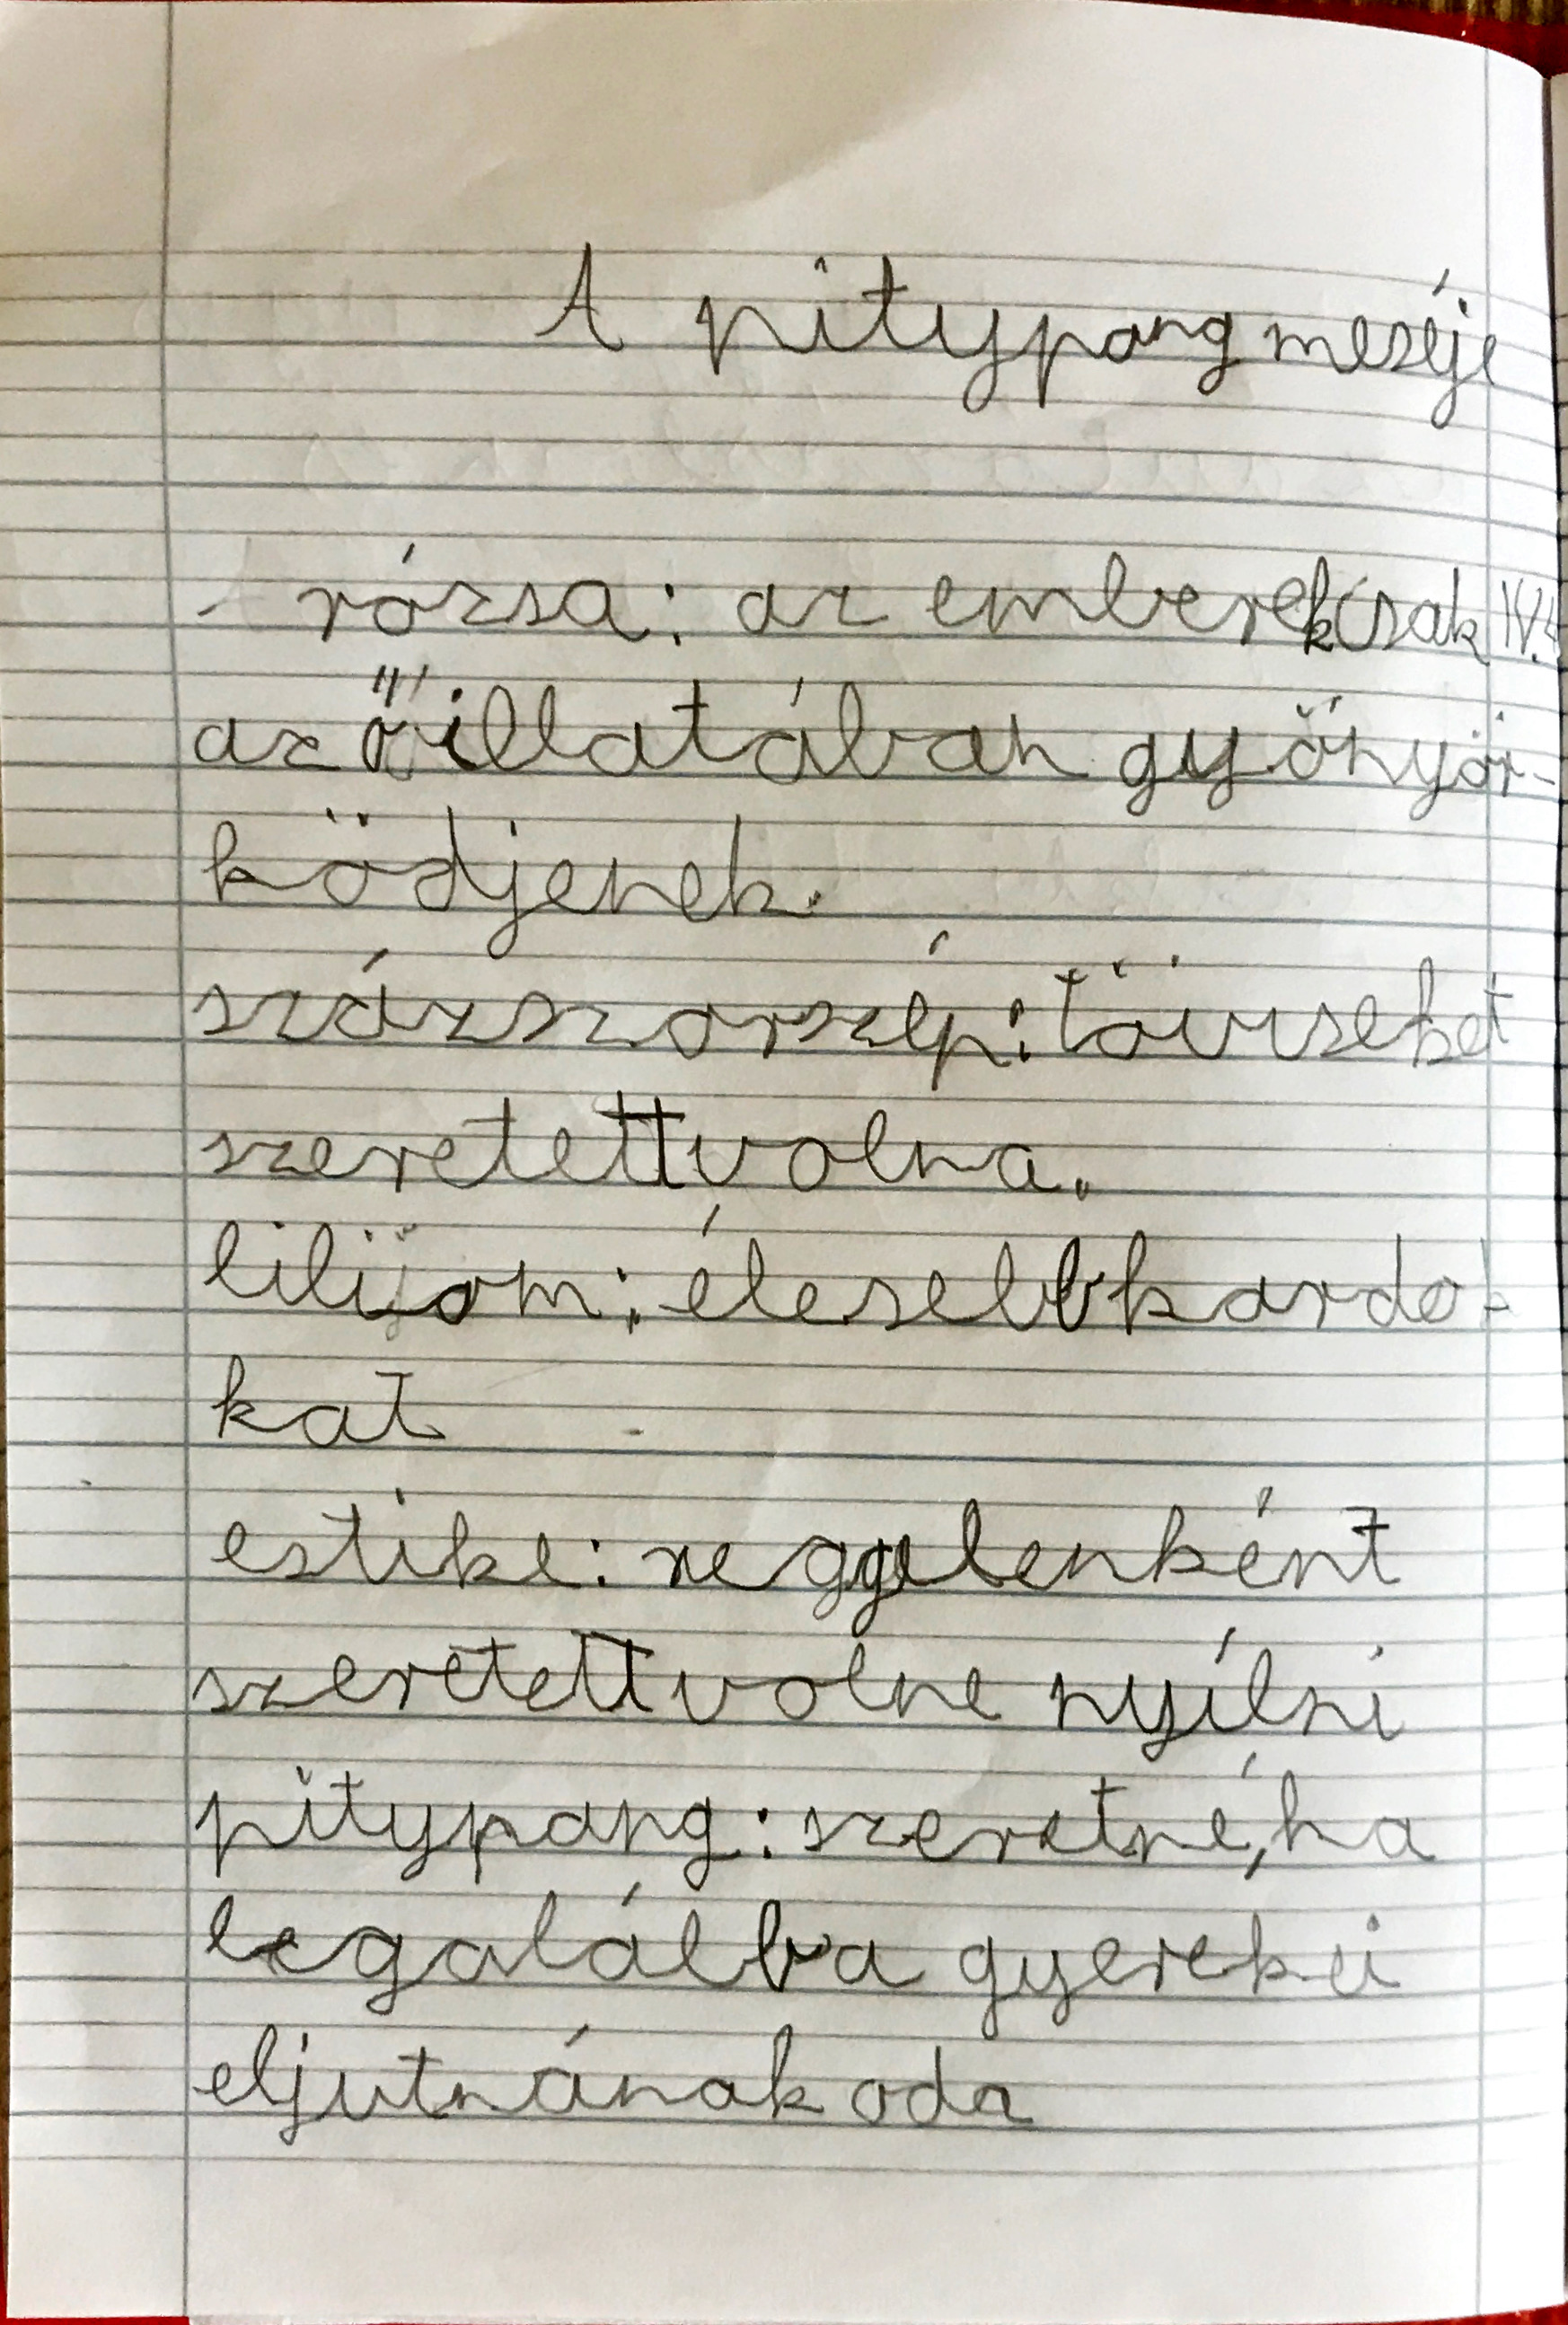 A pitypang meséje
- rózsa: az emberek csak
az ő illatában gyönyör-
ködjenek.
százszorszép: töviseket
szeretett volna.
lilijom: élesebb kardo-
kat
estike: reggelenként
szeretett volne nyílni
pitypang: szeretné, ha
legalább a gyerekei
eljutnának oda